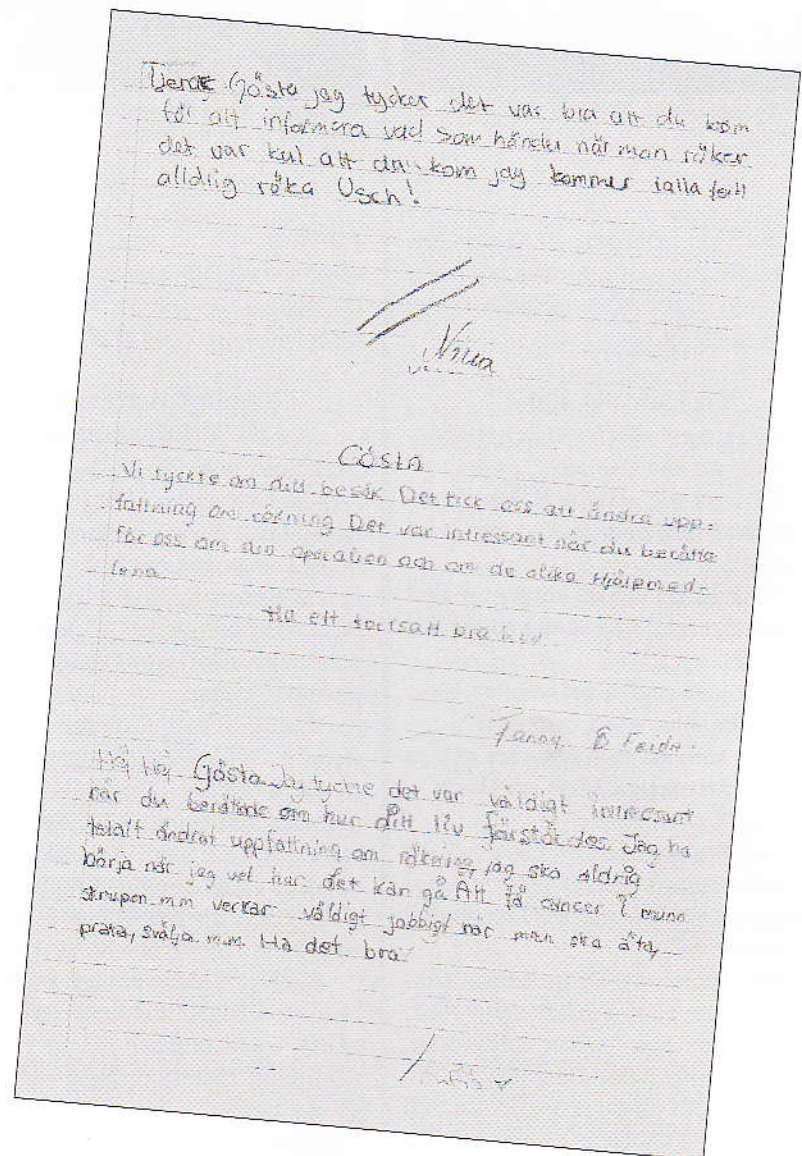 Gösta jag tycker det var bra att du kom
för att informera vad som händer när man röker
det var kul att du kom jag kommer ialla fall
alldrig röka Usch!
Gösta
Vi tyckte om ditt besök Det fick oss att ändra upp-
fattning om rökning Det var intressant när du berätta
För oss om din operation och om de olika Hjälpmed-
lena
Ha ett fortsatt bra liv
Fanny &
Hej Hej Gösta Jag tyckte det var väldigt intressant
när du berättade om hur ditt liv förstördes. Jag ha
totalt ändrat uppfattning om rökning, jag ska aldrig
börja när jag vet hur det kan gå Att få cancer i munn
strupen mm verkar väldigt jobbigt när man ska äta,
prata, svälja m.m. Ha det bra!